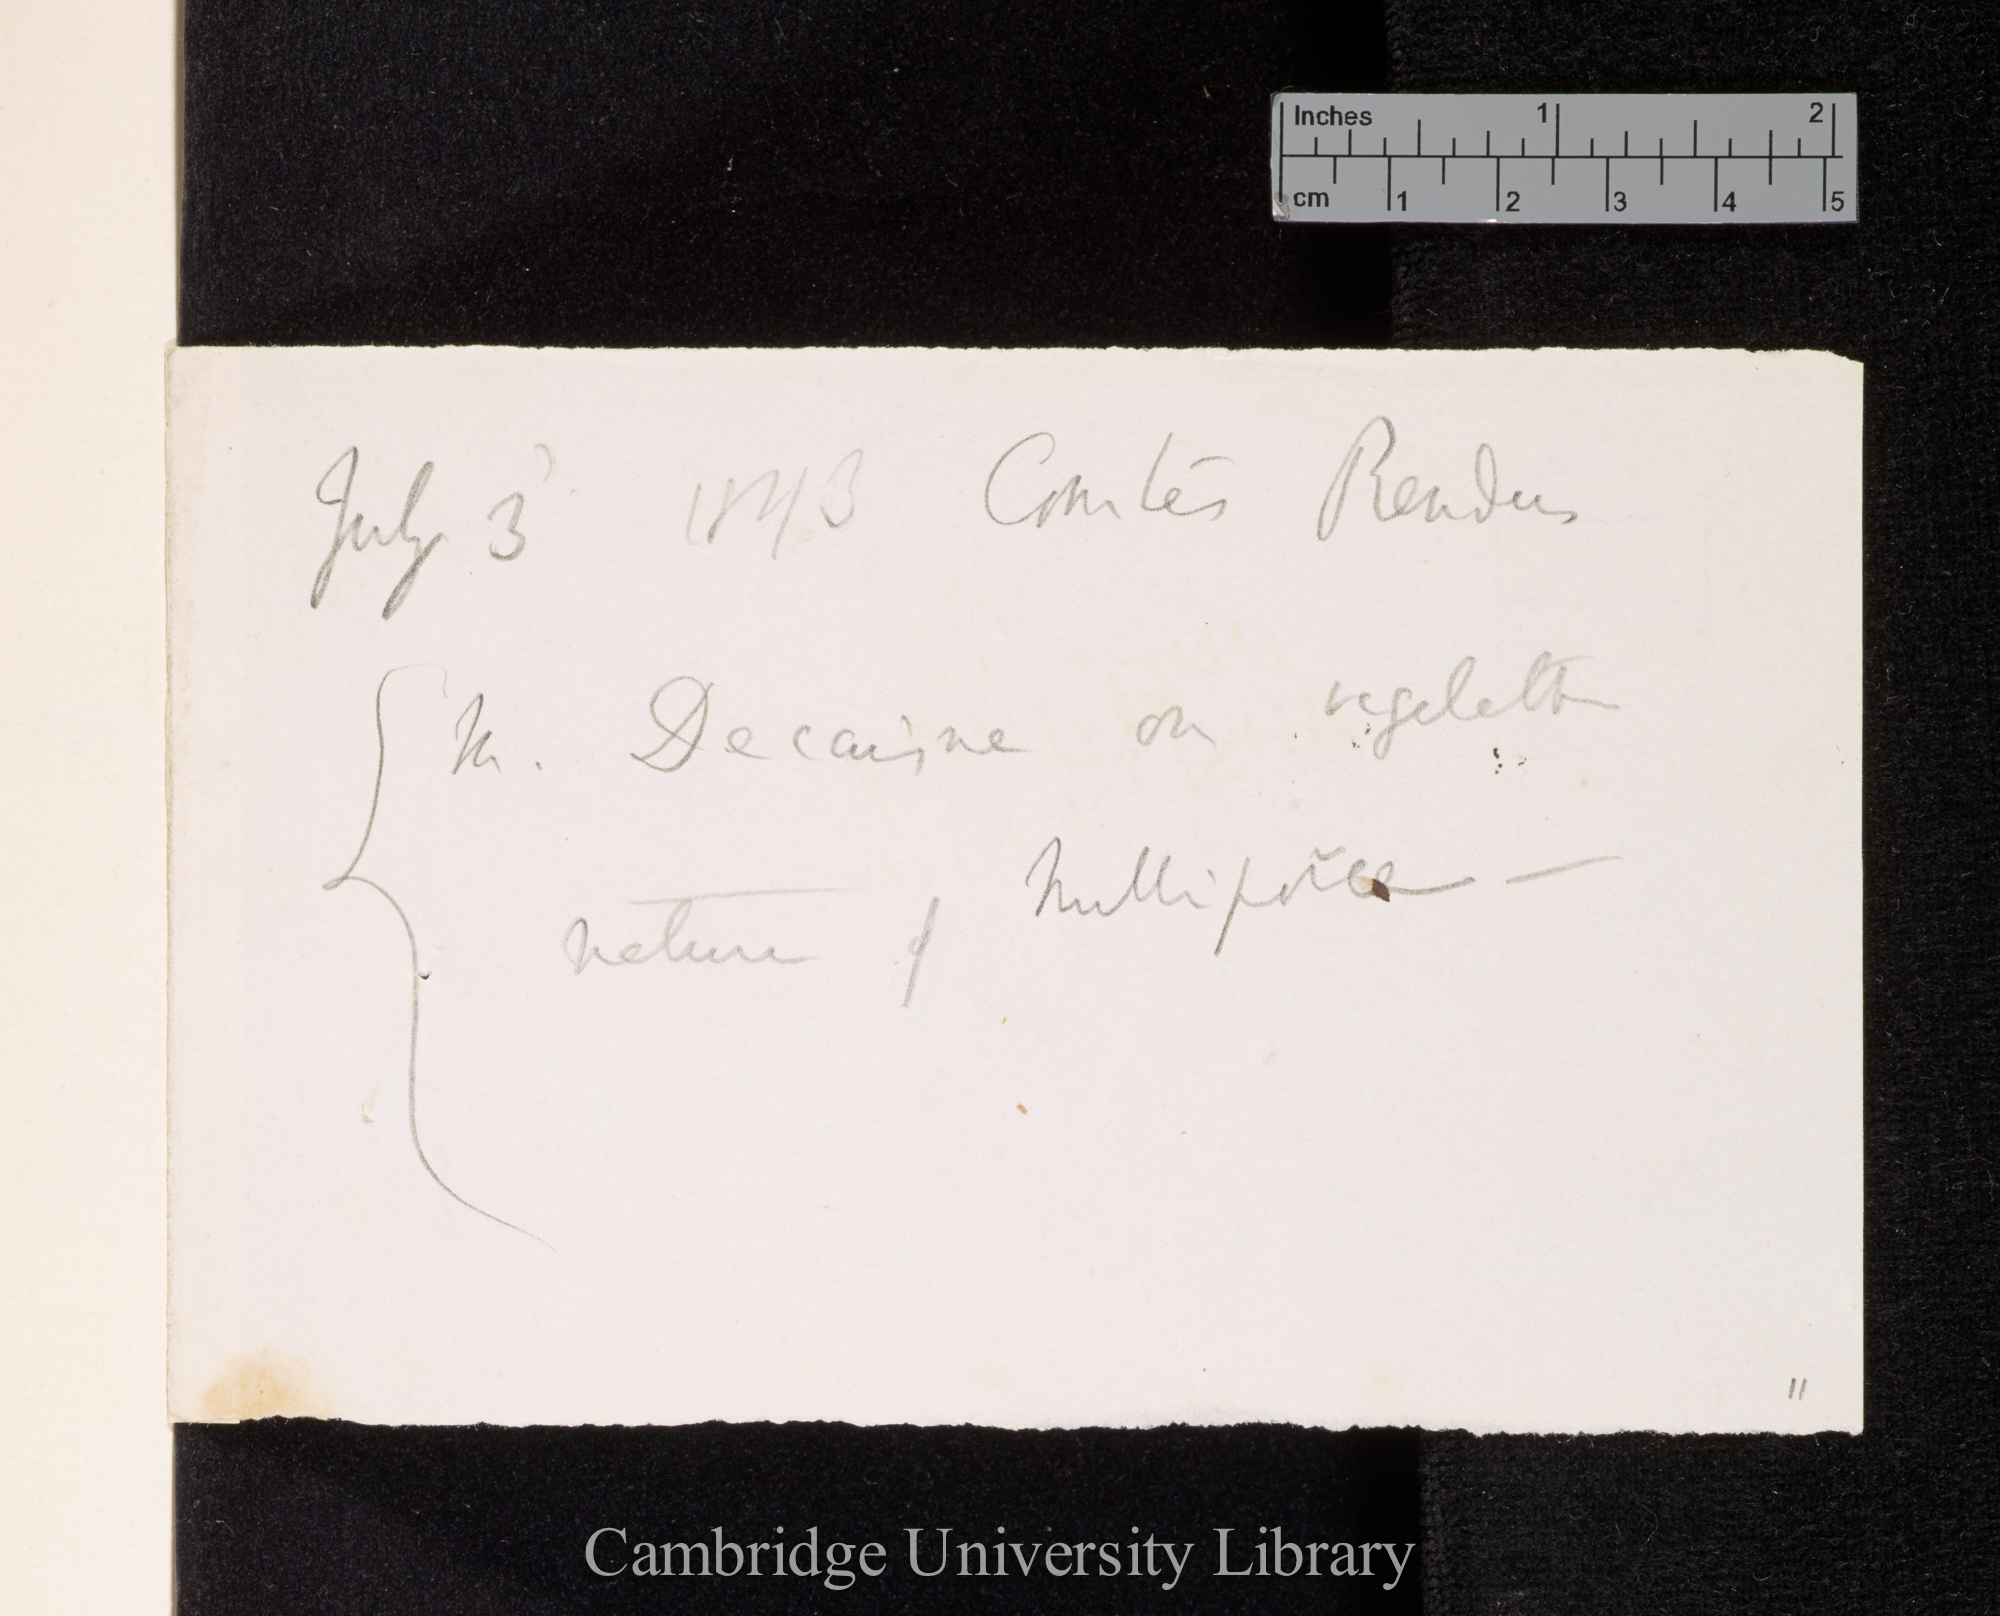 Inches 1 2
cm 1 2 3 4 5
July 3d 1843 Comtes Rendus
M. Decaisne on vegetable
nature of Nullipores —
11
Cambridge University Library